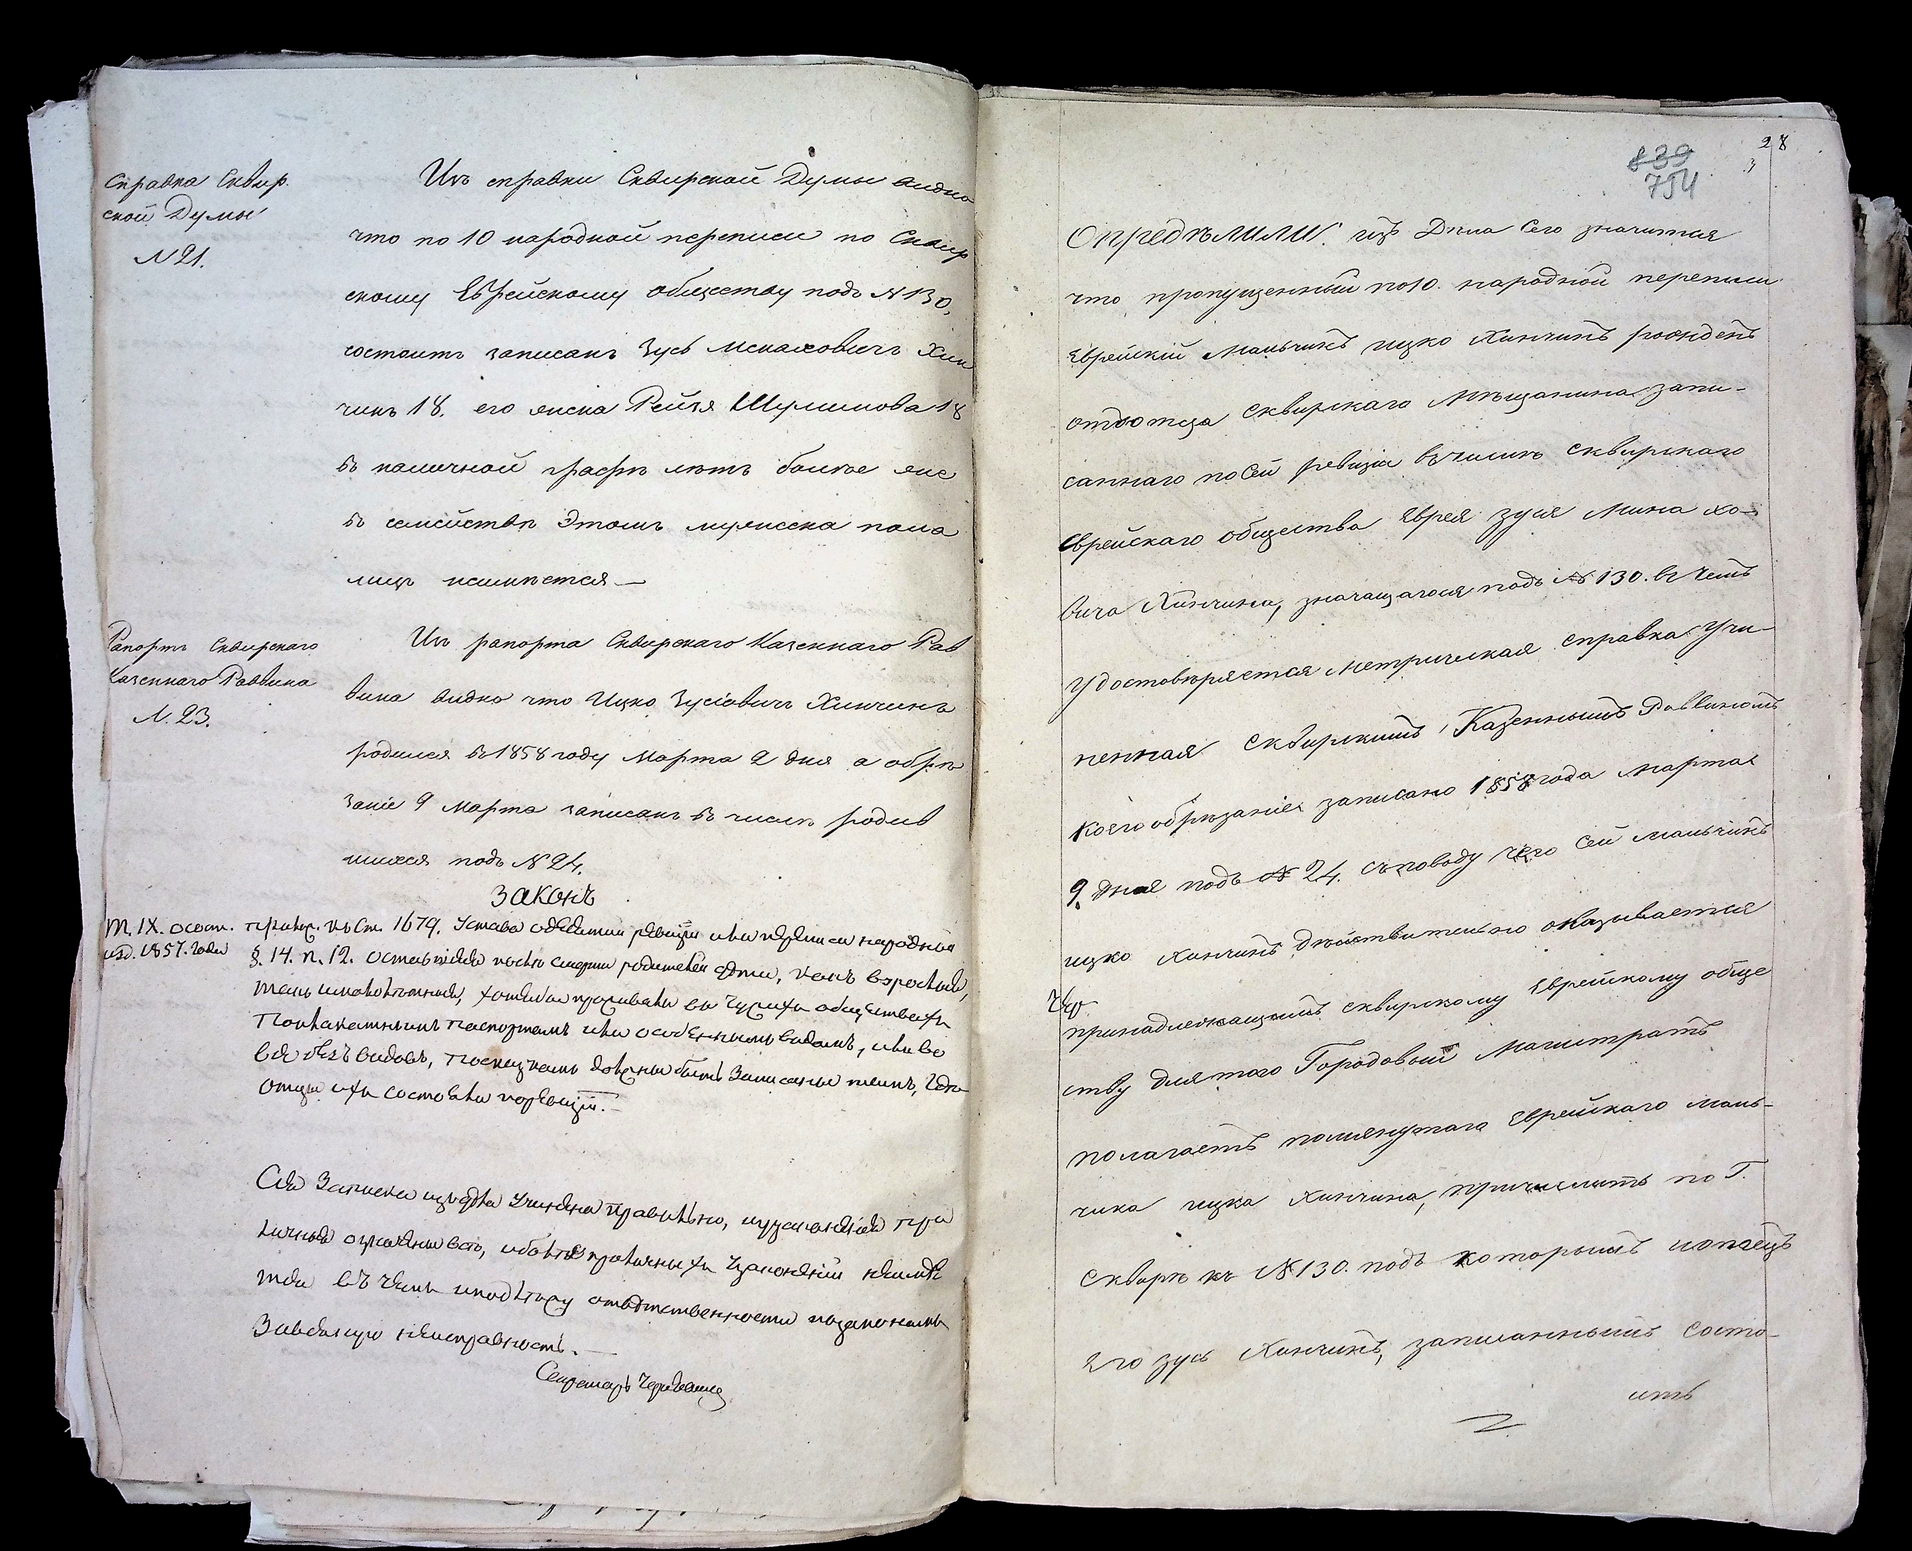 Справка Сквир.
ской Думы
N 21.
Изъ справки Сквирской Думы видно
что по 10 народной переписи по Сквир
скому Еврейскому обществу подъ N 130,
состоитъ записанъ Зусь Менаховичъ Хин
чинъ 18. его жена Рейзя Шулимова 18
въ наличной графѣ лѣтъ болѣе же
въ семействѣ Этомъ мужеска пола
лицъ неимѣется —
Рапортъ Сквирскаго
Казеннаго Раввина
N. 23.
Изъ рапорта Сквирскаго Казеннаго Рав
вина видно что Ицко Зусіовичъ Хинчинъ
родился въ 1858 году Марта 2 дня а обрѣ
заніе 9 Марта записанъ въ числѣ родив
шихся подъ N 24.
Законъ
Т. IX. о сост.
изд. 1857. года
прилож. къ Ст. 1679. Устава о девятой ревизіи или переписи народной
§. 14. п. 12. оставшіеся послѣ смерти родителей дѣти, какъ взрослые,
такъ и малолѣтные, хотябы проживали въ чужихъ обществахъ
по плакатнымъ паспортамъ или особеннымъ видамъ, или во
все безъ видовъ, по сказкамъ должны быть записаны тамъ, гдѣ
отцы ихъ состояли по ревизіи. —
Сія Записка изъ дѣла учинена правильно, и узаконенія при
личныя означены всѣ, и болѣе приличныхъ узаконеній неимѣе
тся въ чемъ и подлежу отвѣтственности по законамъ
За всякую неисправность. —
Секретарь
28
839
754
Опредѣлили: изъ Дѣла Сего значится
что пропущенный по 10. народной переписи
Еврейскій Мальчикъ Ицко Хинчинъ рожденъ
отъ отца Сквирскаго Мѣщанина запи-
саннаго по Сей ревизіи въ числѣ Сквирскаго
Еврейскаго общества Еврея Зуся Мина хо-
вича Хинчина, значащагося подъ N 130. въ чемъ
удостовѣряется Метрическая справка учи-
ненная Сквирскимъ Казеннымъ Раввиномъ
коего обрѣзаніе записано 1858 года Марта
9. дня подъ N 24. съ поводу чего сей мальчикъ
Ицко Хинчинъ дѣйствительно оказывается
принадлежащимъ Сквирскому Еврейскому обще
ству для того Городовый Магистратъ
полагаетъ помянутаго Еврейскаго маль-
чика Ицка Хинчина, причислить по Г.
Сквирѣ къ N 130. подъ которымъ и отецъ
Его Зусь Хинчинъ, записаннымъ состо-
итъ